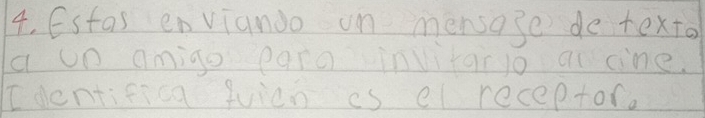 4. Estas enviando un mensage de texto
a un amigo para invitarlo al cine.
Identifica quien es el receptor.